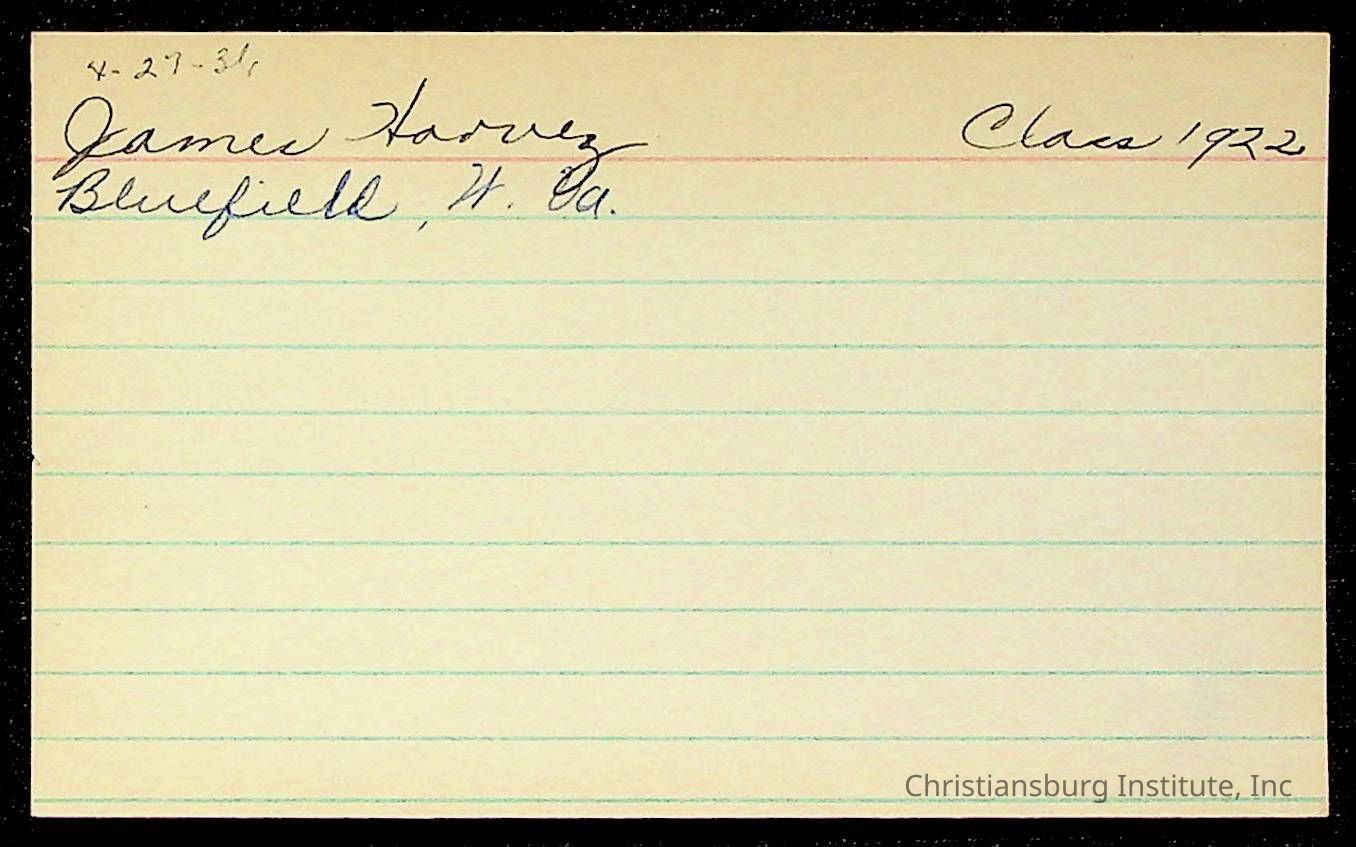 4-27-36
James Harvey Class 1922
Bluefield, W. Va.
Christiansburg Institute, Inc